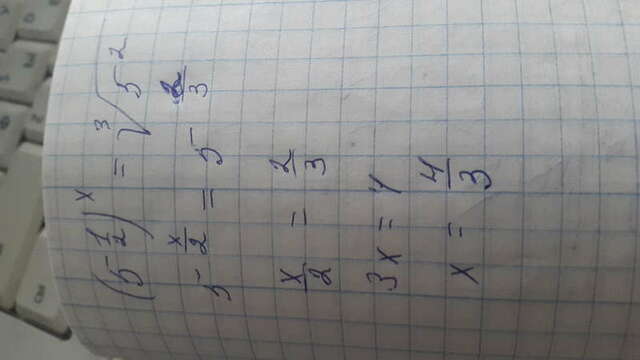 (5^{\frac{1}{2}})^x = \sqrt[3]{5^2}
5^{\frac{x}{2}} = 5^{\frac{2}{3}}
\frac{x}{2} = \frac{2}{3}
3x = 4
x = \frac{4}{3}